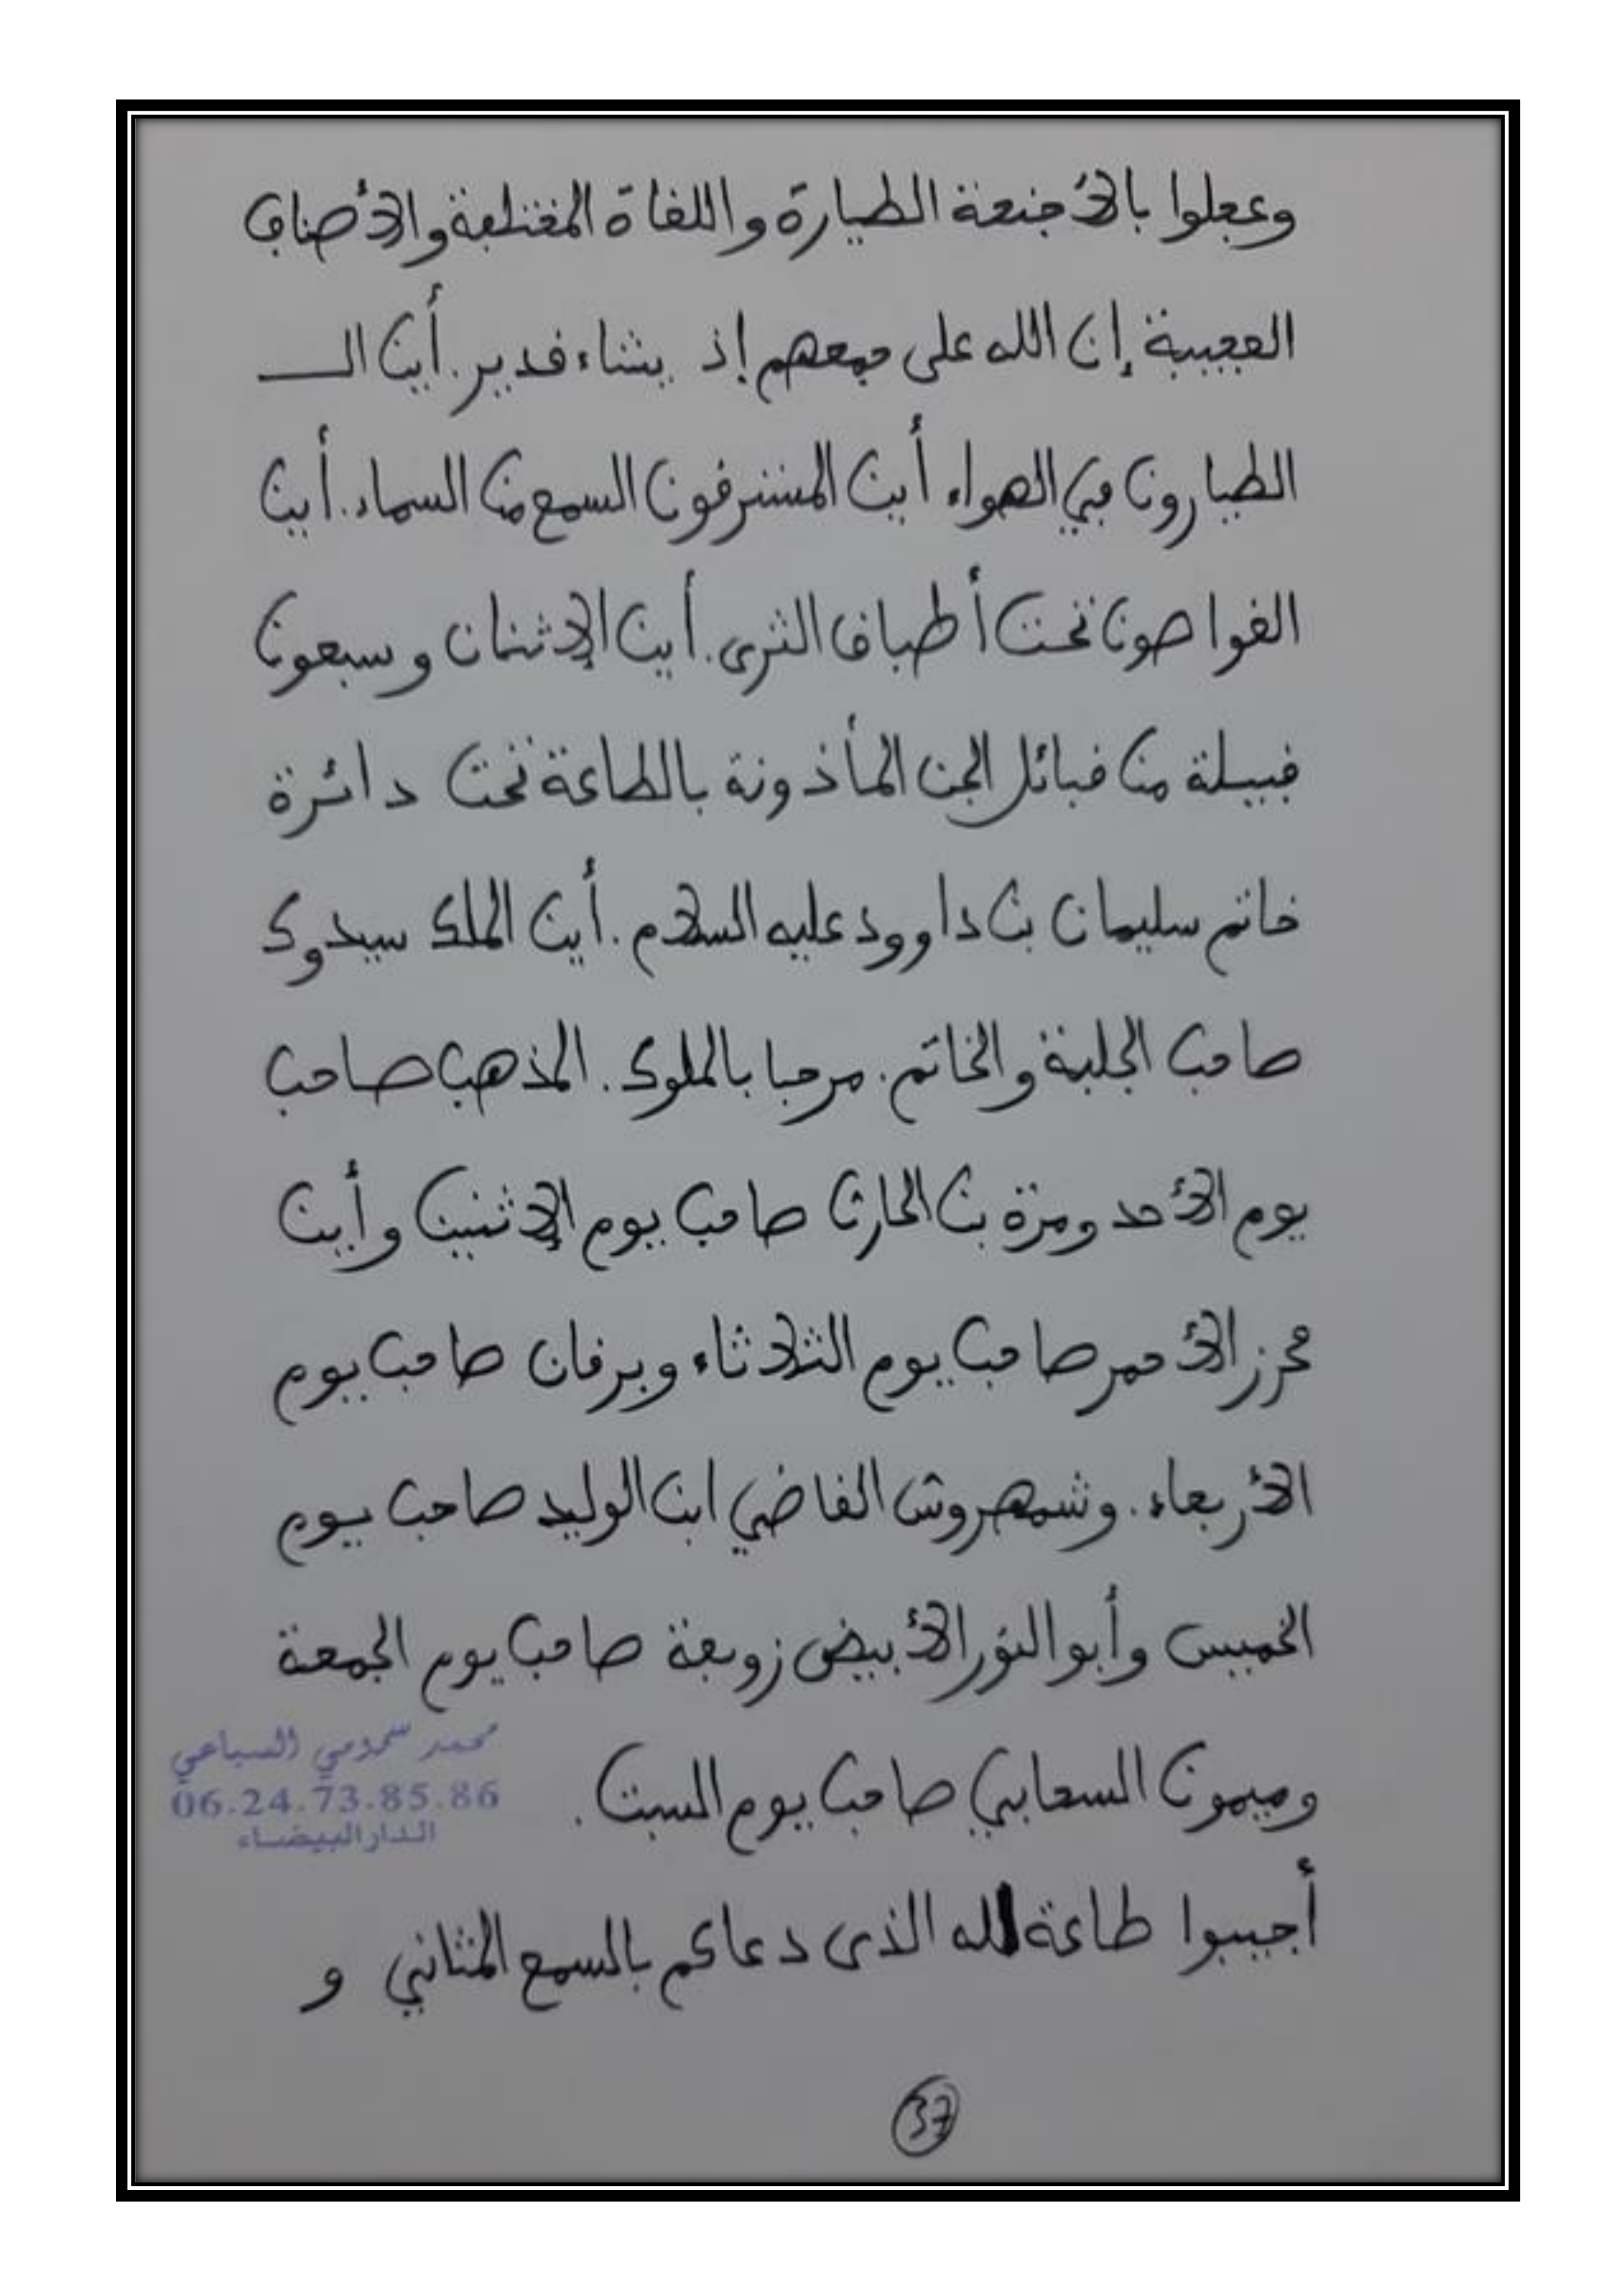 وعجلوا بالأجنحة الطيارة واللغاة المختلفة والأصناف
العجيبة إن الله على جمعهم إذ يشاء قدير. أين الـ
الطيارون في الهواء أين المسترقون السمع من السماء. أين
الغواصون تحت أطباق الثرى. أين الإثنان وسبعون
قبيلة من قبائل الجن المأذونة بالطاعة تحت دائرة
خاتم سليمان بن داوود عليه السلام. أين الملك سيدوك
صاحب الجلبة والخاتم. مرحبا بالملوك. المذهب صاحب
يوم الأحد ومرة بن الحارث صاحب يوم الإثنين وأين
محرز الأحمر صاحب يوم الثلاثاء وبرقان صاحب يوم
الأربعاء. وشمهروش القاضي ابن الوليد صاحب يوم
الخميس وأبو النور الأبيض زوبعة صاحب يوم الجمعة
وميمون السحابي صاحب يوم السبت.
محمد سمومي السباعي
06.24.73.85.86
الدار البيضاء
أجيبوا طاعة لله الذي دعاكم بالسمع المثاني و
37